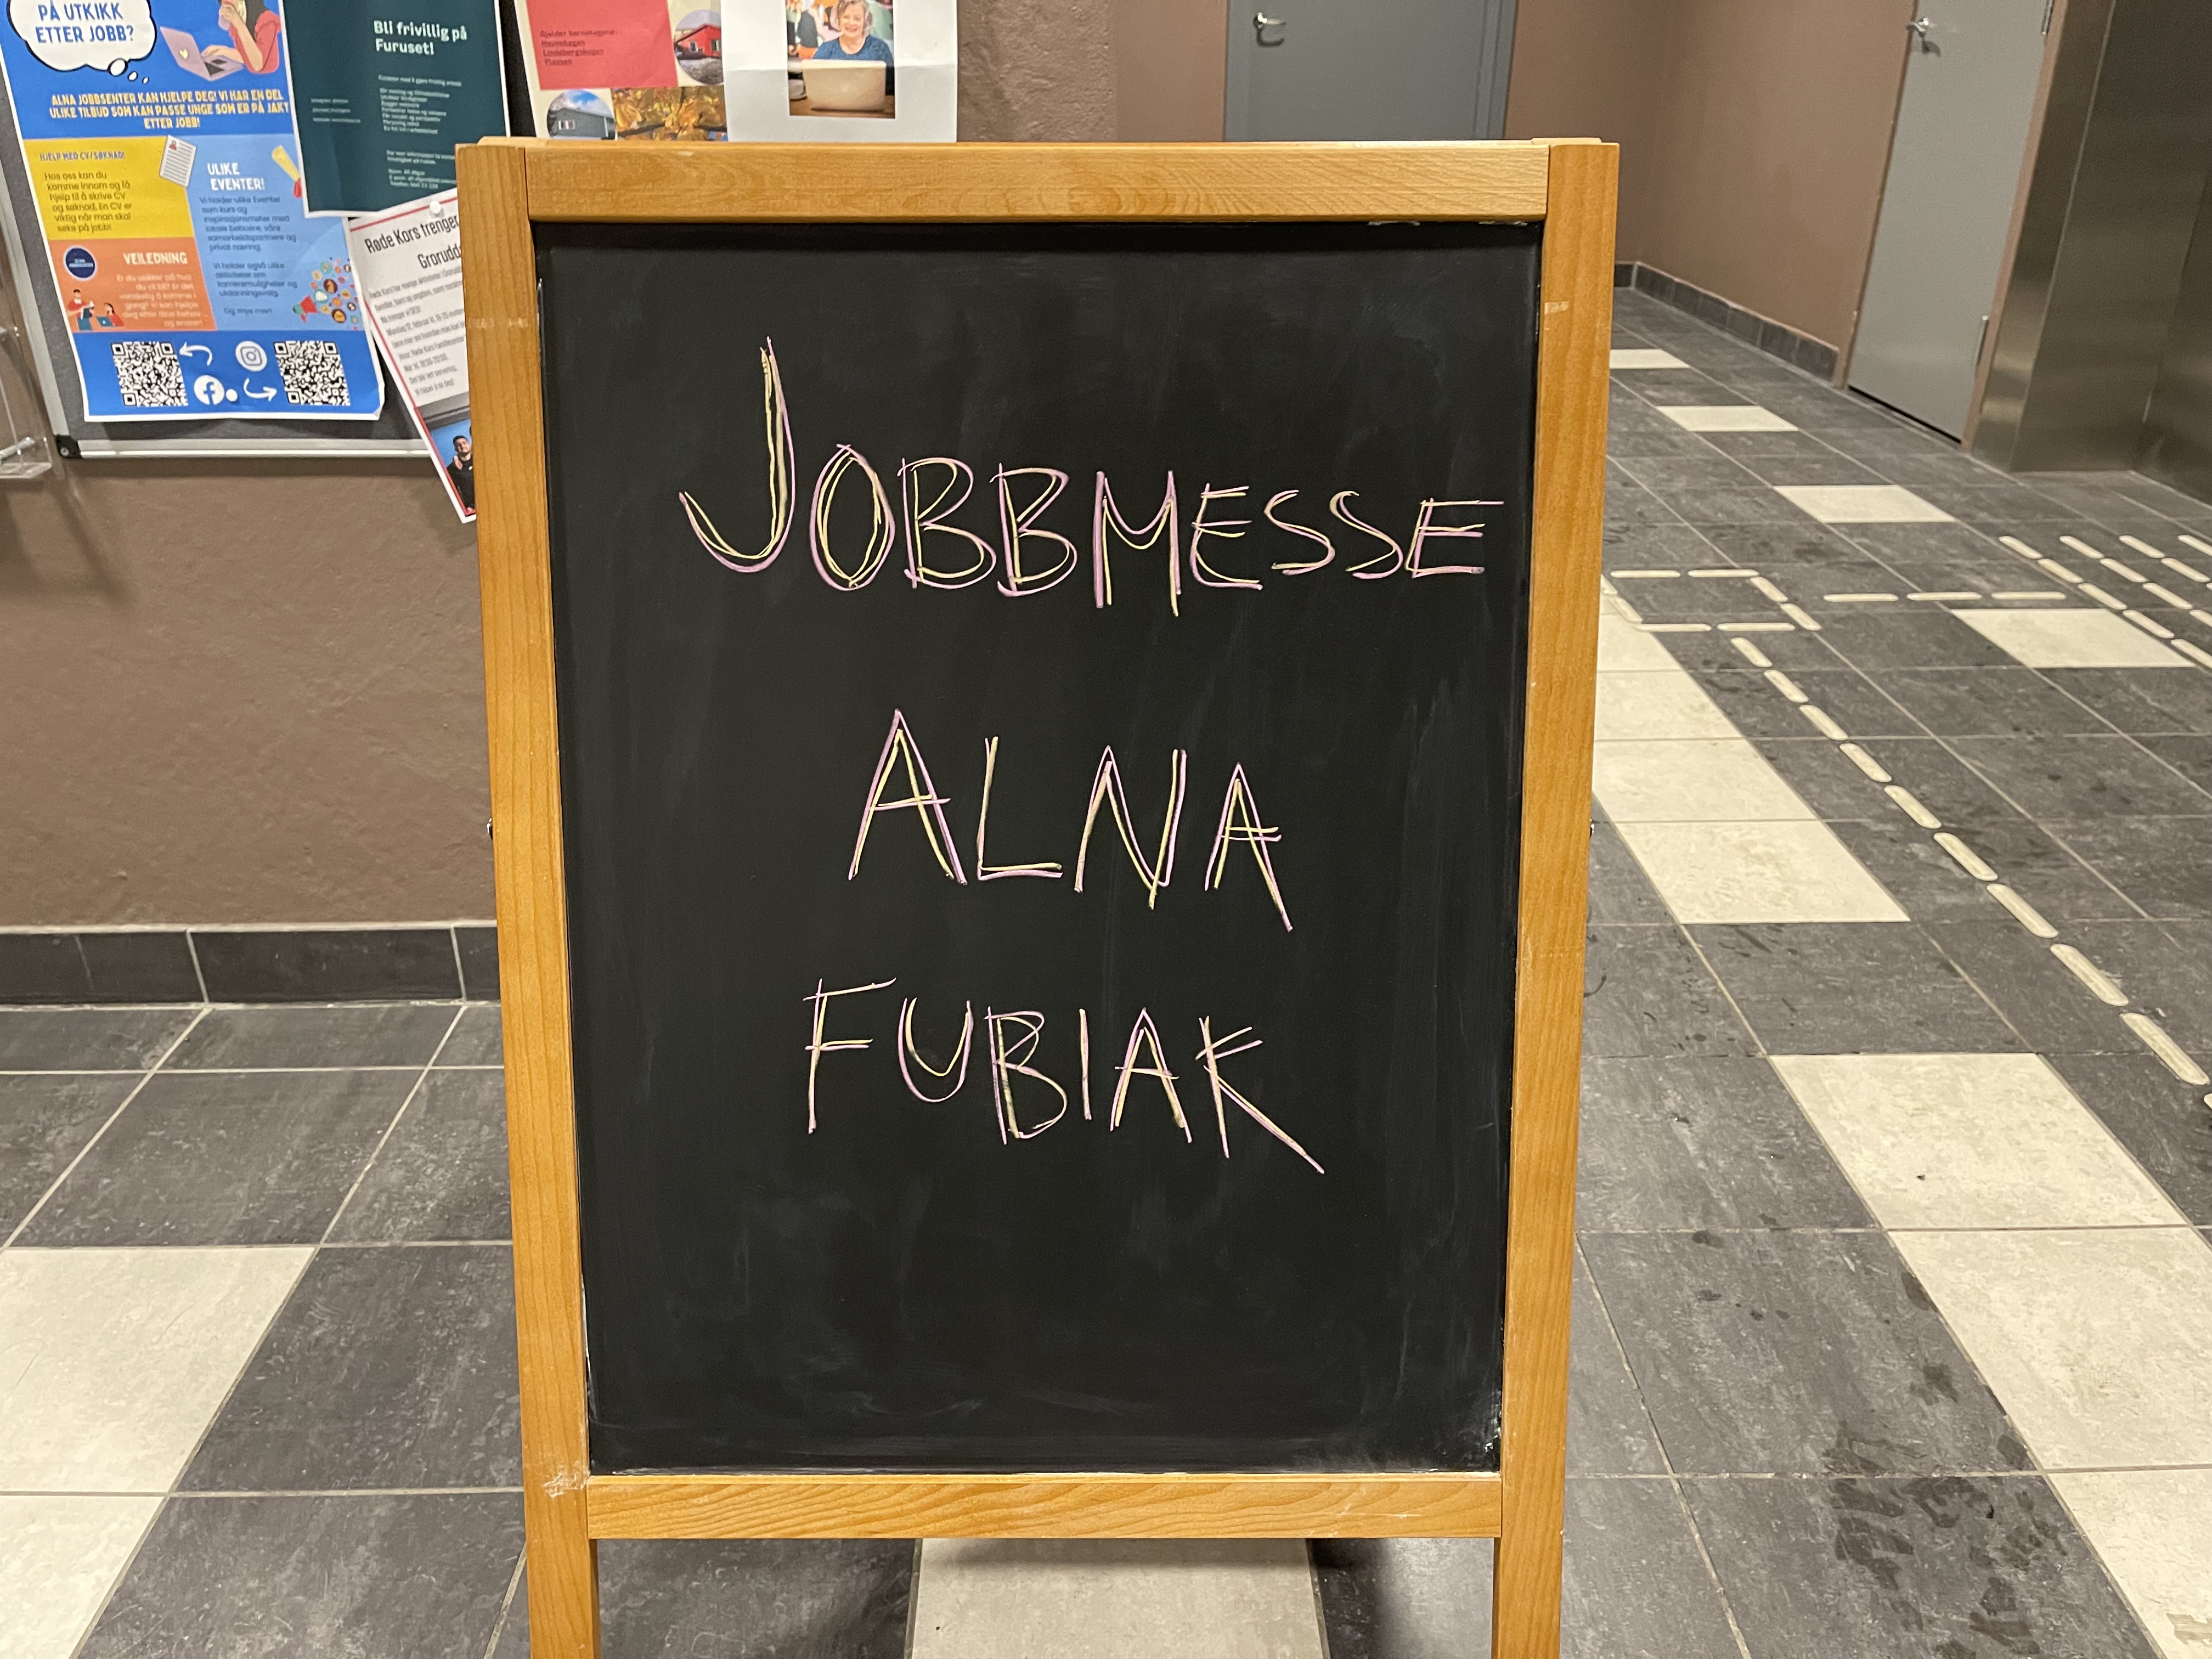 PÅ UTKIKK
ETTER JOBB?
ALNA JOBBSENTER KAN HJELPE DEG! VI HAR EN DEL
ULIKE TILBUD SOM KAN PASSE UNGE SOM ER PÅ JAKT
ETTER JOBB!
HJELP MED CV/SØKNAD!
Hos oss kan du
komme innom og få
hjelp til å skrive CV
og søknad. En CV er
viktig når man skal
søke på jobb!
ULIKE
EVENTER!
Vi holder ulike Eventer
som kurs og
inspirasjonsmøter med
lokale beboere, våre
samarbeidspartnere og
privat næring.
Vi holder også ulike
aktiviteter om
karrieremuligheter og
utdanningsvalg.
Og mye mer!
VEILEDNING
Er du usikker på hva
du vil bli? Er det
vanskelig å komme i
gang? Vi kan hjelpe
deg etter dine behov
og ønsker!
Bli frivillig på
Furuset!
Gjelder barnehagene:
Havnehagen
Lindebergskogen
Plassen
Røde Kors trenger
Grorudd
JOBBMESSE
ALNA
FUBIAK